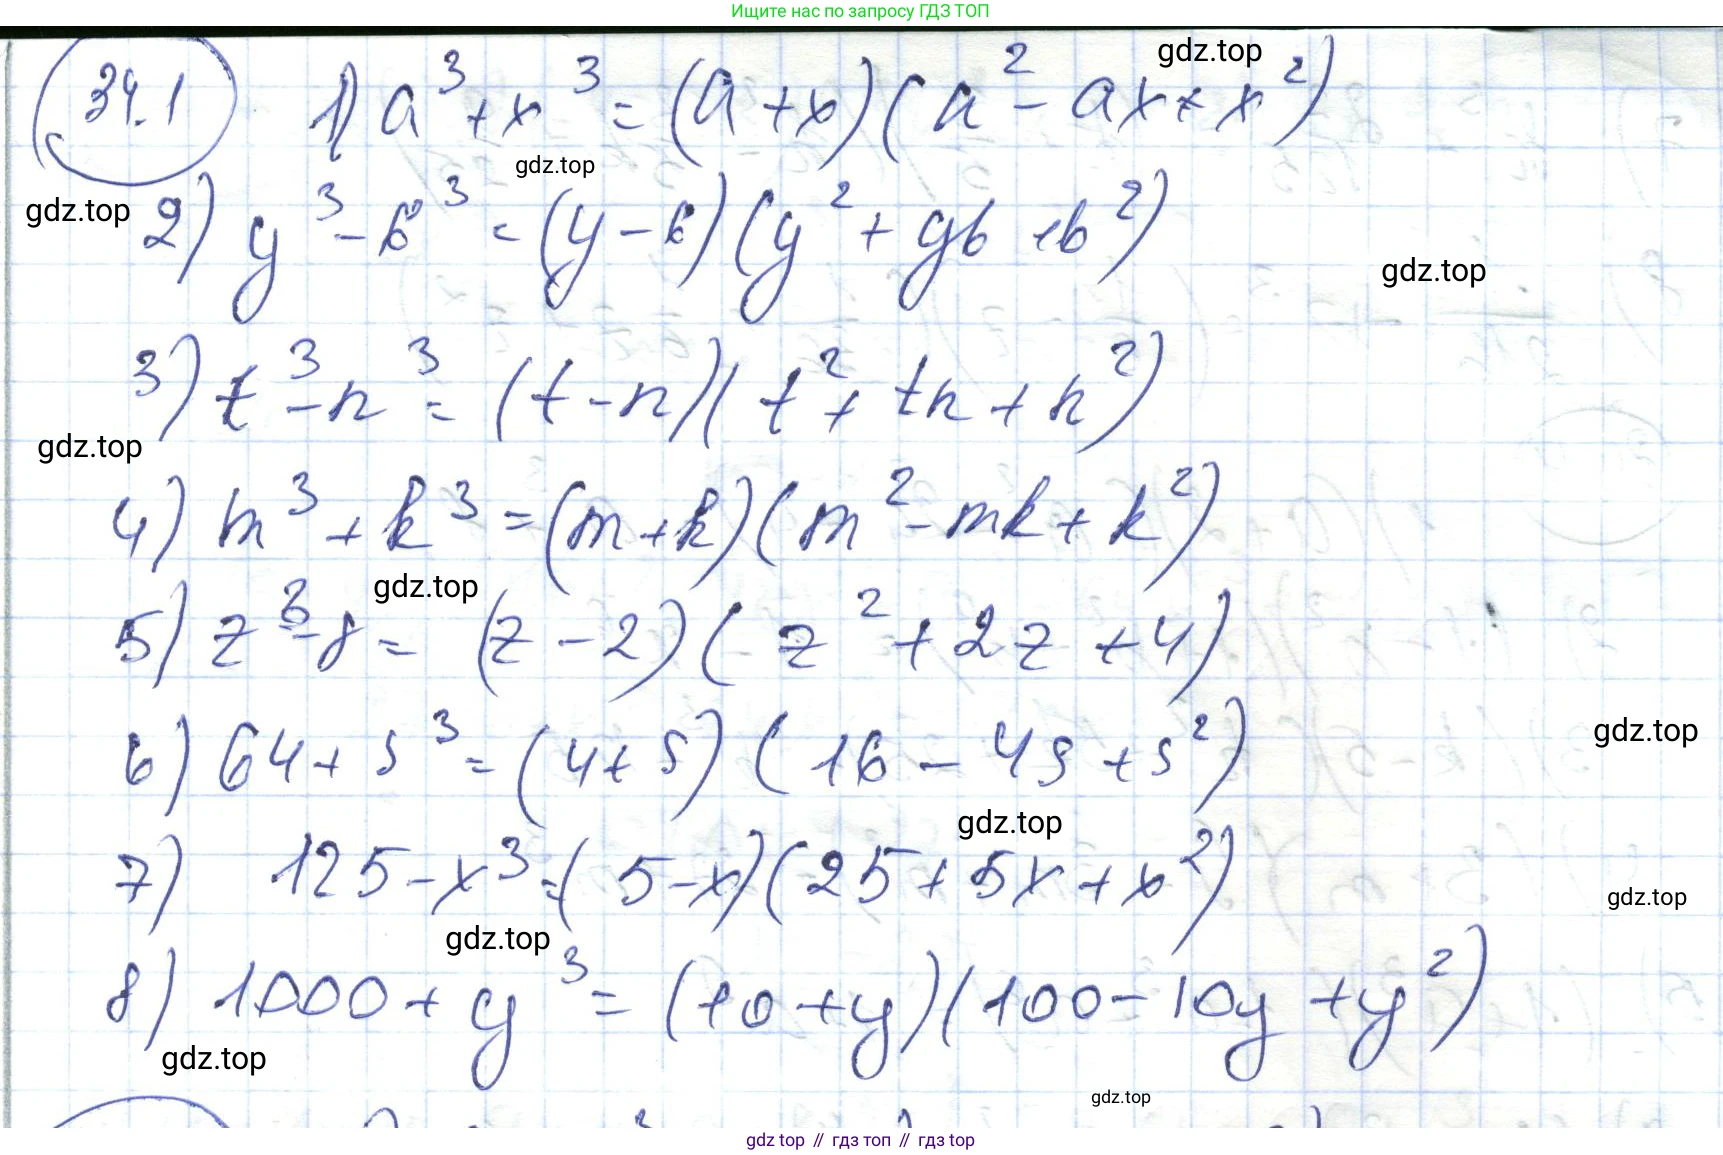 Ищите нас по запросу ГДЗ ТОП
34.1 1) a³ + x³ = (a + x)(a² - ax + x²)
gdz.top
gdz.top
gdz.top 2) y³ - b³ = (y - b)(y² + yb + b²)
gdz.top
3) t³ - n³ = (t - n)(t² + tn + n²)
gdz.top
4) m³ + k³ = (m + k)(m² - mk + k²)
gdz.top
5) z³ - 8 = (z - 2)(z² + 2z + 4)
6) 64 + s³ = (4 + s)(16 - 4s + s²)
gdz.top
gdz.top
7) 125 - x³ = (5 - x)(25 + 5x + x²)
gdz.top
gdz.top
8) 1000 + y³ = (10 + y)(100 - 10y + y²)
gdz.top
gdz.top
gdz top // гдз топ // гдз top